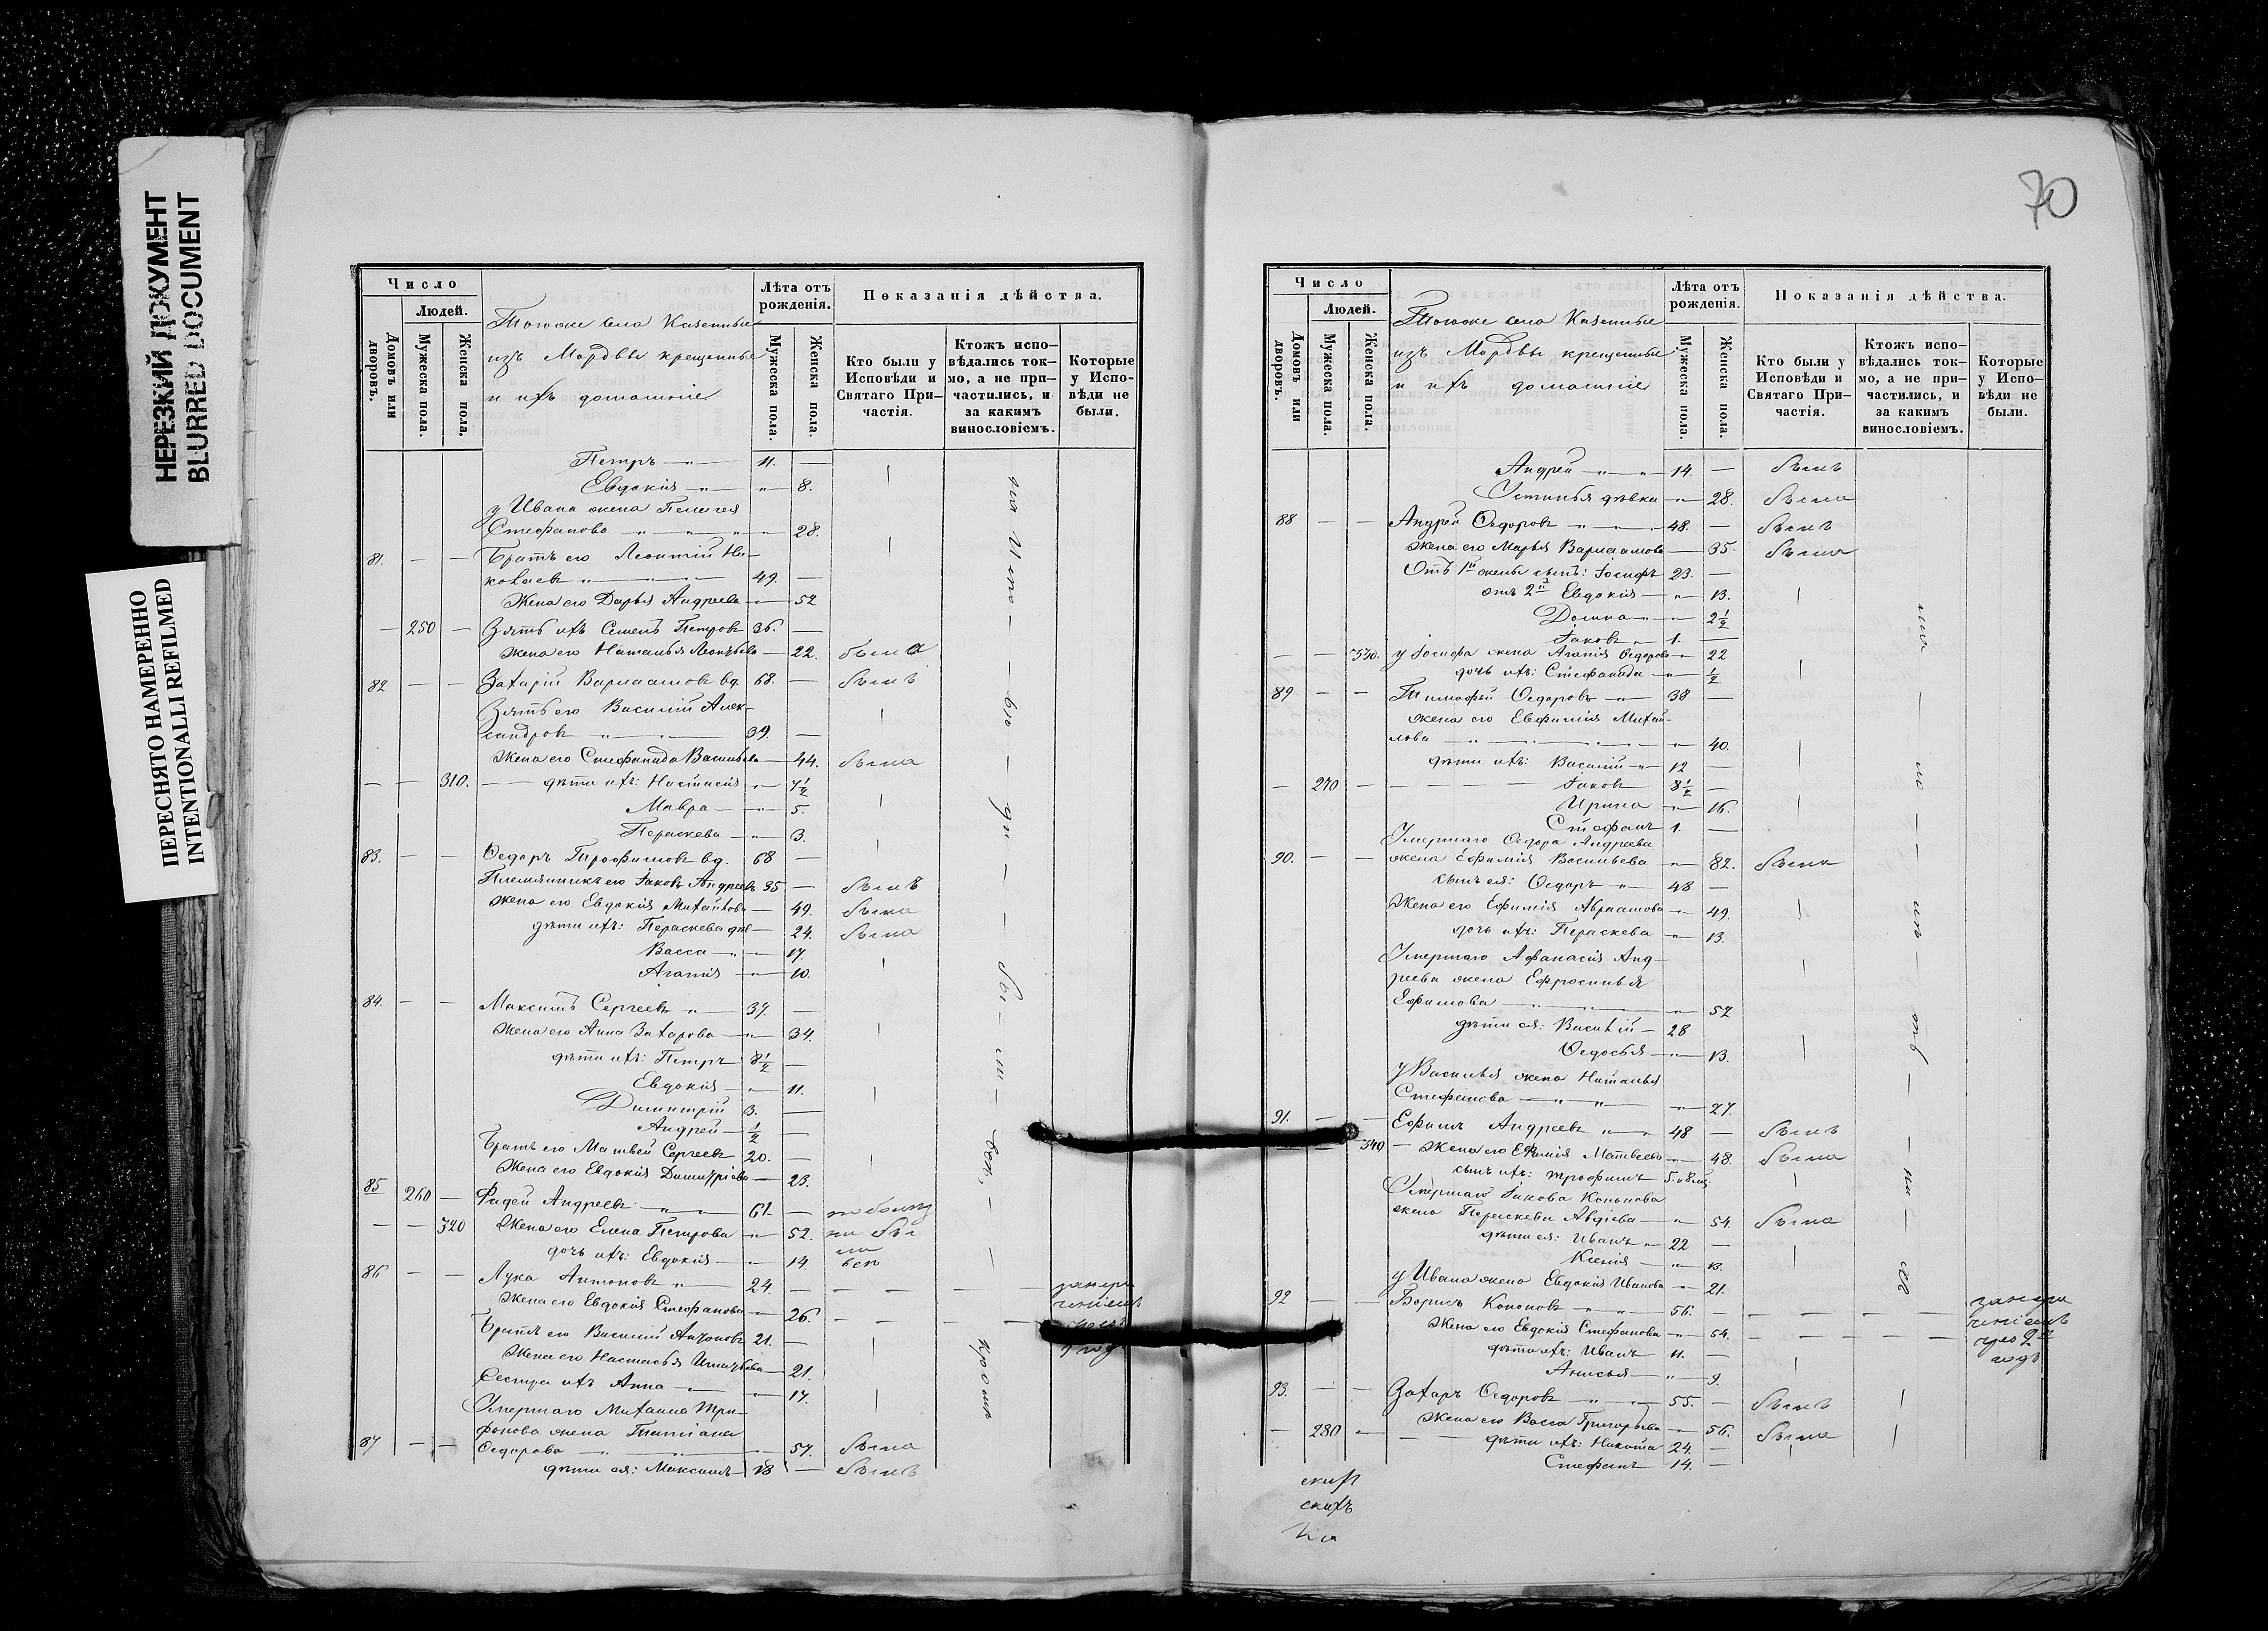 НЕРЕЗКИЙ ДОКУМЕНТ
BLURRED DOCUMENT
ПЕРЕСНЯТО НАМЕРЕННО
INTENTIONALLI REFILMED
Число
Людей.
Домовъ или дворовъ.
Мужеска пола.
Женска пола.
Тогоже села Казенные
изъ Мордвы крещенные
и ихъ домашніе
Лѣта отъ рожденія.
Мужеска пола.
Женска пола.
Показанія дѣйства.
Кто были у Исповѣди и Святаго Причастія.
Ктожъ исповѣдались токмо, а не причастились, и за какимъ винословіемъ.
Которые у Исповѣди не были.
Петръ — 11. —
Евдокія — 8.
у Ивана жена Пелагея
Стефанова — 28.
81. — — Братъ его Леонтій Ни-
колаевъ — 49. —
Жена его Дарья Андреева — 52
— 250 — Зять ихъ Семенъ Петровъ 36. —
Жена его Наталья Леонтьева — 22. была
82 — — Захарій Варлаамовъ вд. 68. — былъ
Зять его Василій Алек-
сандровъ — 39. —
Жена его Стефанида Васильева — 44. была
— — 310. — дѣти ихъ: Настасія — 7½
Мавра — 5.
Параскева — 3.
83. — — Ѳедоръ Трофимовъ вд. 68 —
Племянникъ его Іаковъ Андреевъ 35 — былъ
Жена его Евдокія Михайлова — 49. была
дѣти ихъ: Параскева — 24. была
Васса — 17.
Агапія — 10.
84. — — Максимъ Сергеевъ — 37. —
Жена его Анна Захарова — 34.
дѣти ихъ: Петръ 8½ —
Евдокія — 11.
Димитрій 3. —
Андрей — ½ —
Братъ его Матвей Сергеевъ 20. —
Жена его Евдокія Димитріева — 23.
85 260 — Фадей Андреевъ — 61. —
— — 320 Жена его Елена Петрова — 52.
дочь ихъ: Евдокія — 14.
86 — — Лука Антоновъ — 24. — — — —
Жена его Евдокія Стефанова — 26. — — — —
Братъ его Василій Антоновъ 21. —
Жена его Настасья Игнатьева — 21.
Сестра ихъ Анна — 17.
Умершаго Михаила Три-
фонова жена Татіана
87 — — Ѳедорова — 57. была
дѣти ея: Максимъ — 18 — былъ
70
Число
Людей.
Домовъ или дворовъ.
Мужеска пола.
Женска пола.
Тогоже села Казенные
изъ Мордвы крещенные
и ихъ домашніе
Лѣта отъ рожденія.
Мужеска пола.
Женска пола.
Показанія дѣйства.
Кто были у Исповѣди и Святаго Причастія.
Ктожъ исповѣдались токмо, а не причастились, и за какимъ винословіемъ.
Которые у Исповѣди не были.
Андрей — 14. — былъ
Устинья дѣвка — 28. была
88 — — Андрей Ѳедоровъ — 48. — былъ
Жена его Марья Варлаамова — 35. была
Отъ 1й жены сынъ: Іосифъ 23. —
отъ 2й Евдокія — 13.
Домна — 2½
Іаковъ — 1. —
— — 330. у Іосифа жена Агапія Ѳедорова — 22
дочь ихъ: Стефанида — ½
89 — — Тимофей Ѳедоровъ — 38 —
жена его Евфимія Михай-
лова — 40.
дѣти ихъ: Василій — 12 —
— 270 — Іаковъ 8½ —
Ирина — 16.
Стефанъ 1. —
Умершаго Ѳедора Андреева
90. — — жена Ефимія Васильева — 82. была
сынъ ея: Ѳедоръ — 48 —
Жена его Ефимія Авраамова — 49.
дочь ихъ: Параскева — 13.
Умершаго Афанасія Анд-
реева жена Ефросинья
Ефимова — 57
дѣти ея: Василій — 28
Ѳедосья — 13.
у Василья жена Наталья
Стефанова — 27.
91. — — Ефимъ Андреевъ — 48 — былъ
— — 340 — Жена его Ефимія Матвеева — 48. была
сынъ ихъ: Трофимъ
Умершаго Іакова Кононова
жена Параскева Авдіева — 54. была
дѣти ея: Иванъ — 22 —
Ксенія — 13.
у Ивана жена Евдокія Иванова — 21.
92 — — Борисъ Кононовъ — 56. — — — —
Жена его Евдокія Стефанова — 54. — — — —
дѣти ихъ: Иванъ — 11. —
Анисья — 9.
93. — — Захаръ Ѳедоровъ — 55. — былъ
Жена его Васса Григорьева — 56. была
— 280 — дѣти ихъ: Никита 24. —
Стефанъ 14. —